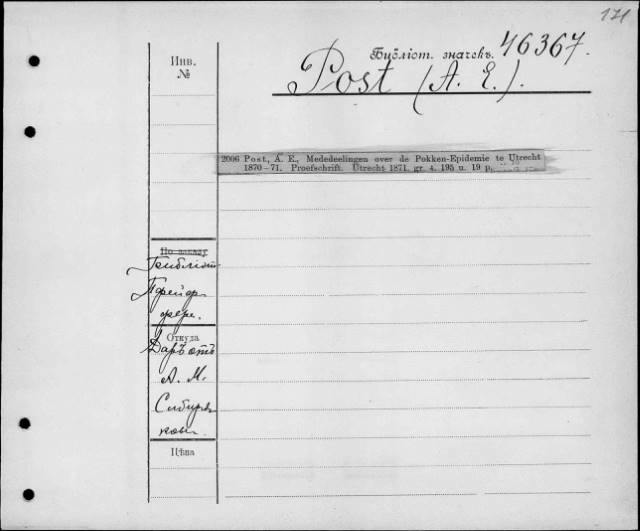 171
Библіот. значекъ. 46367.
Инв.
№
Post (A. E.).
2006 Post, A. E., Mededeelingen over de Pokken-Epidemie te Utrecht
1870–71. Proefschrift. Utrecht 1871. gr. 4. 195 u. 19 p.
По заказу
Библіот
Пфейф
фера.
Откуда
Даръ отъ
А. М.
Сибиря
кова.
Цѣна